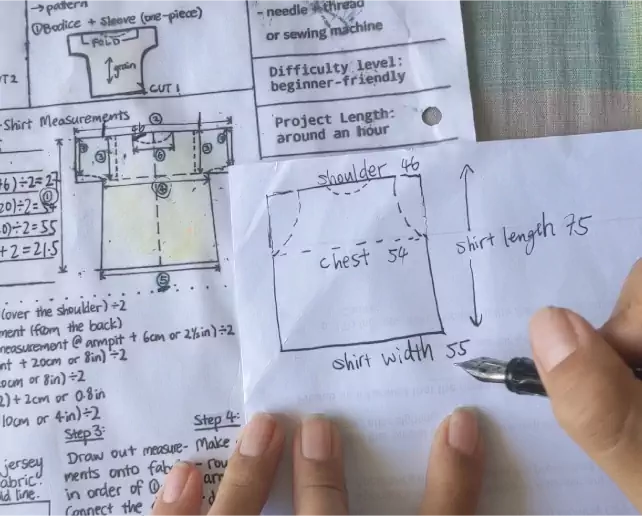 →pattern
①Bodice + Sleeve (one-piece)
FOLD
grain
CUT 1
- needle + thread
or sewing machine
Difficulty level:
beginner-friendly
Project Length:
around an hour
-Shirt Measurements
②
③
③
⑥
④
⑤
+6)÷2=27
20)÷2=54
0)÷2=55
+2=21.5
(over the shoulder)÷2
ment (from the back)
measurement @ armpit + 6cm or 2½in)÷2
nt + 20cm or 8in)÷2
0cm or 8in)÷2
2)+2cm or 0.8in
10cm or 4in)÷2
Step 3:
Draw out measure-
ments onto fab
in order of ①
Connect the
Step 4:
Make
rou
jersey
abric
ld line.
shoulder 46
chest 54
shirt length 75
shirt width 55